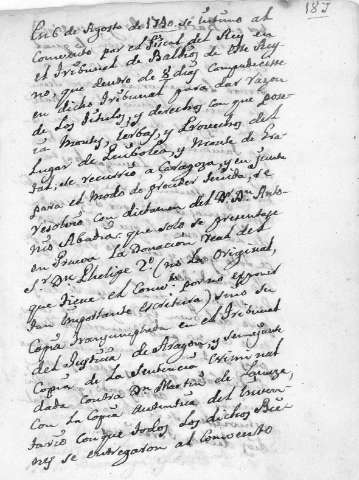 187
En 6 de Agosto de 1740 se intimo al
Convento por el Fiscal del Rey en
el Tribunal de Baldios de este Rey-
no, que dentro de 8 dias compareciesse
en dicho Tribunal para dar razon
de los titulos, y derechos con que posee-
ia Montes, Ierbas, y Provechos del
Lugar de y Monte de
se recurrió a Zaragoza, y en junta
para el modo de proceder tenida, se
resolvió con dictamen del Dr. Dn. Anto-
nio Abadia: que solo se presentasse
en Prueva la Donacion Real del
Sr. Dn. Phelipe 2º (no la Original,
que tiene el Convto. por no exponer
tan importante escritura) sino su
Copia en el Tribunal
del Justicia de Aragon, y semejante
Copia de la Sentencia Criminal
dada contra Dn. Martin de Lanuza,
con la Copia autentica del Inven-
tario con que todos los dichos Bie-
nes se entregaron al Convento